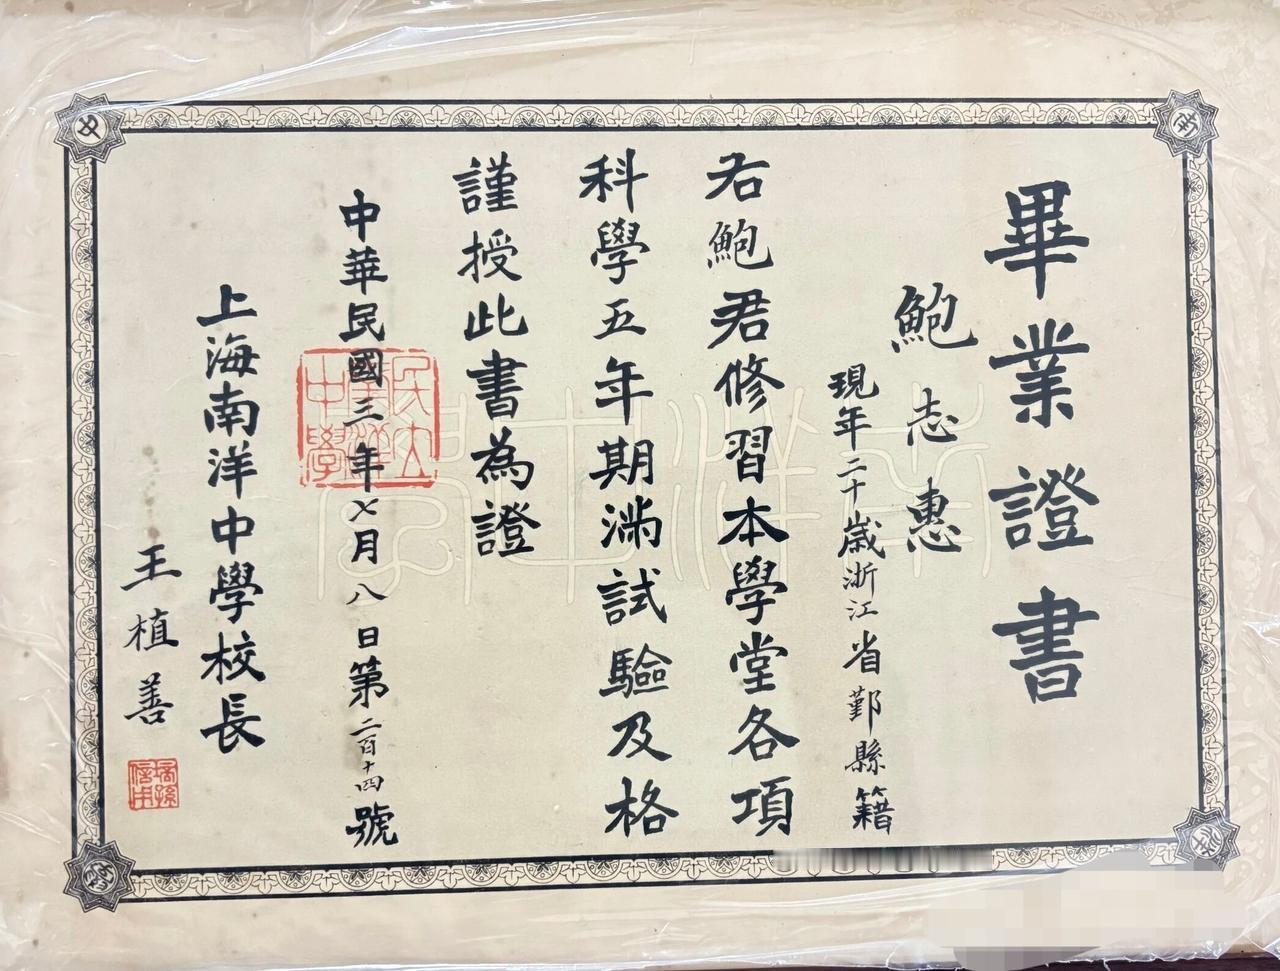 畢業證書
鮑志惠
現年二十歲浙江省鄞縣籍
右鮑君修習本學堂各項
科學五年期滿試驗及格
謹授此書為證
中華民國三年七月八日第二百十四號
上海南洋中學校長
王植善